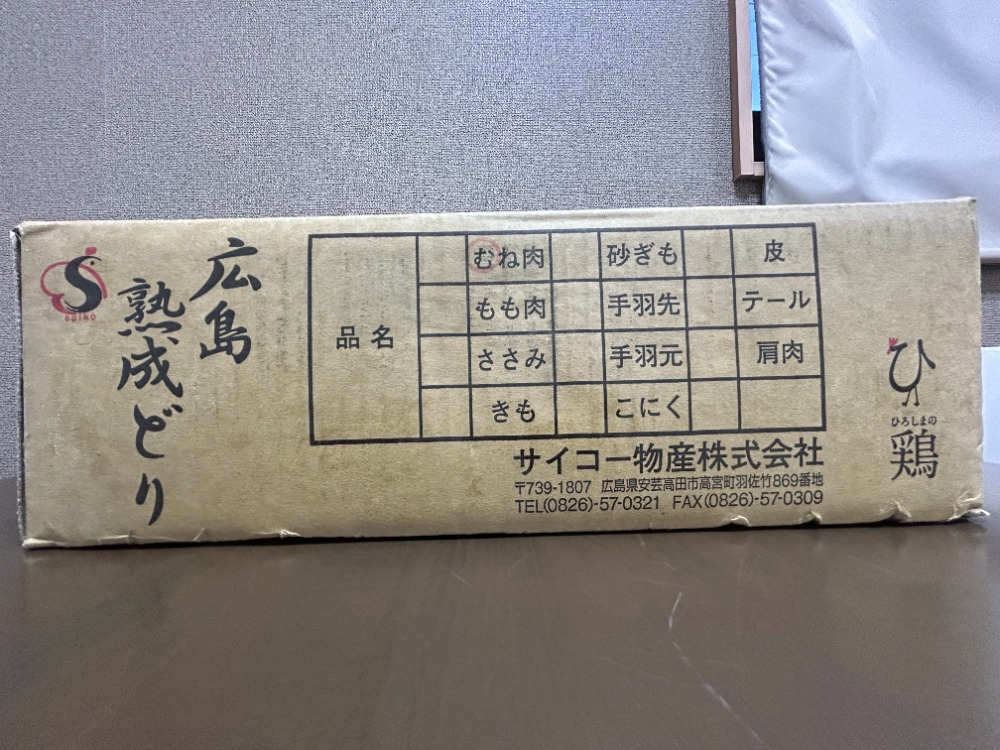 saiko
広島
熟成どり
品名
むね肉 砂ぎも 皮
もも肉 手羽先 テール
ささみ 手羽元 肩肉
きも こにく
サイコー物産株式会社
〒739-1807 広島県安芸高田市高宮町羽佐竹869番地
TEL(0826)-57-0321 FAX(0826)-57-0309
ひ
ひろしまの
鶏